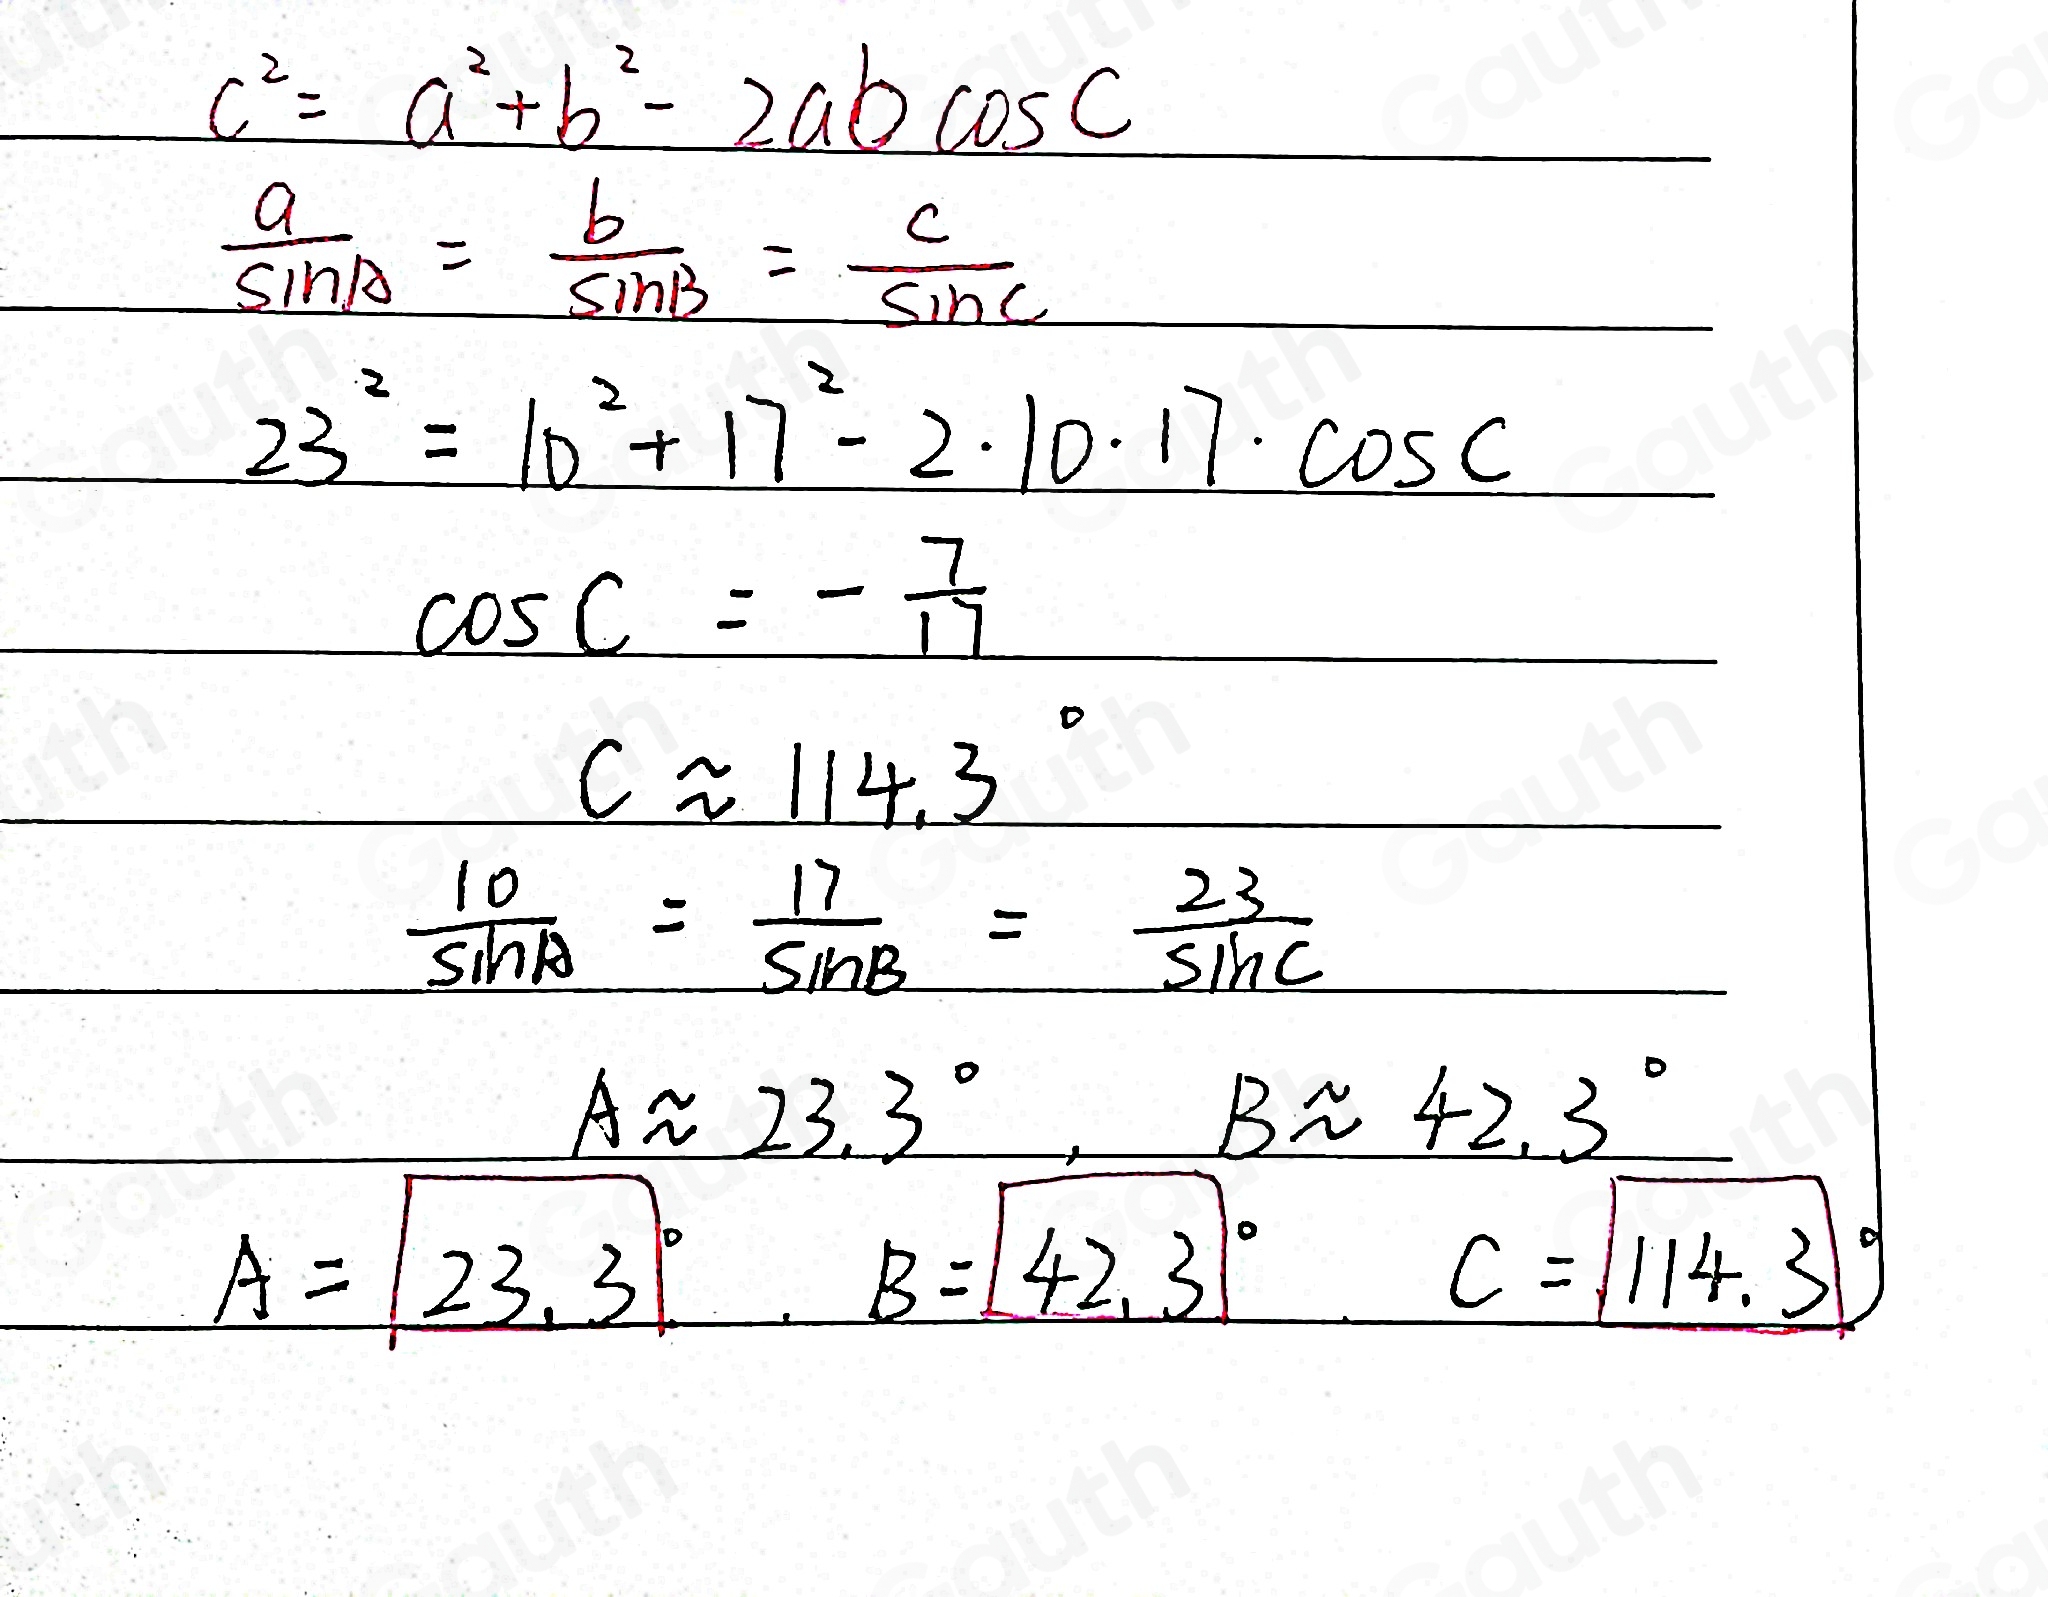 c² = a² + b² - 2ab cos C
a/sinA = b/sinB = c/sinC
23² = 10² + 17² - 2·10·17·cos C
cos C = - 7/17
C ≈ 114.3°
10/sinA = 17/sinB = 23/sinC
A ≈ 23.3°, B ≈ 42.3°
A = 23.3°. B = 42.3°. C = 114.3°
Gauth